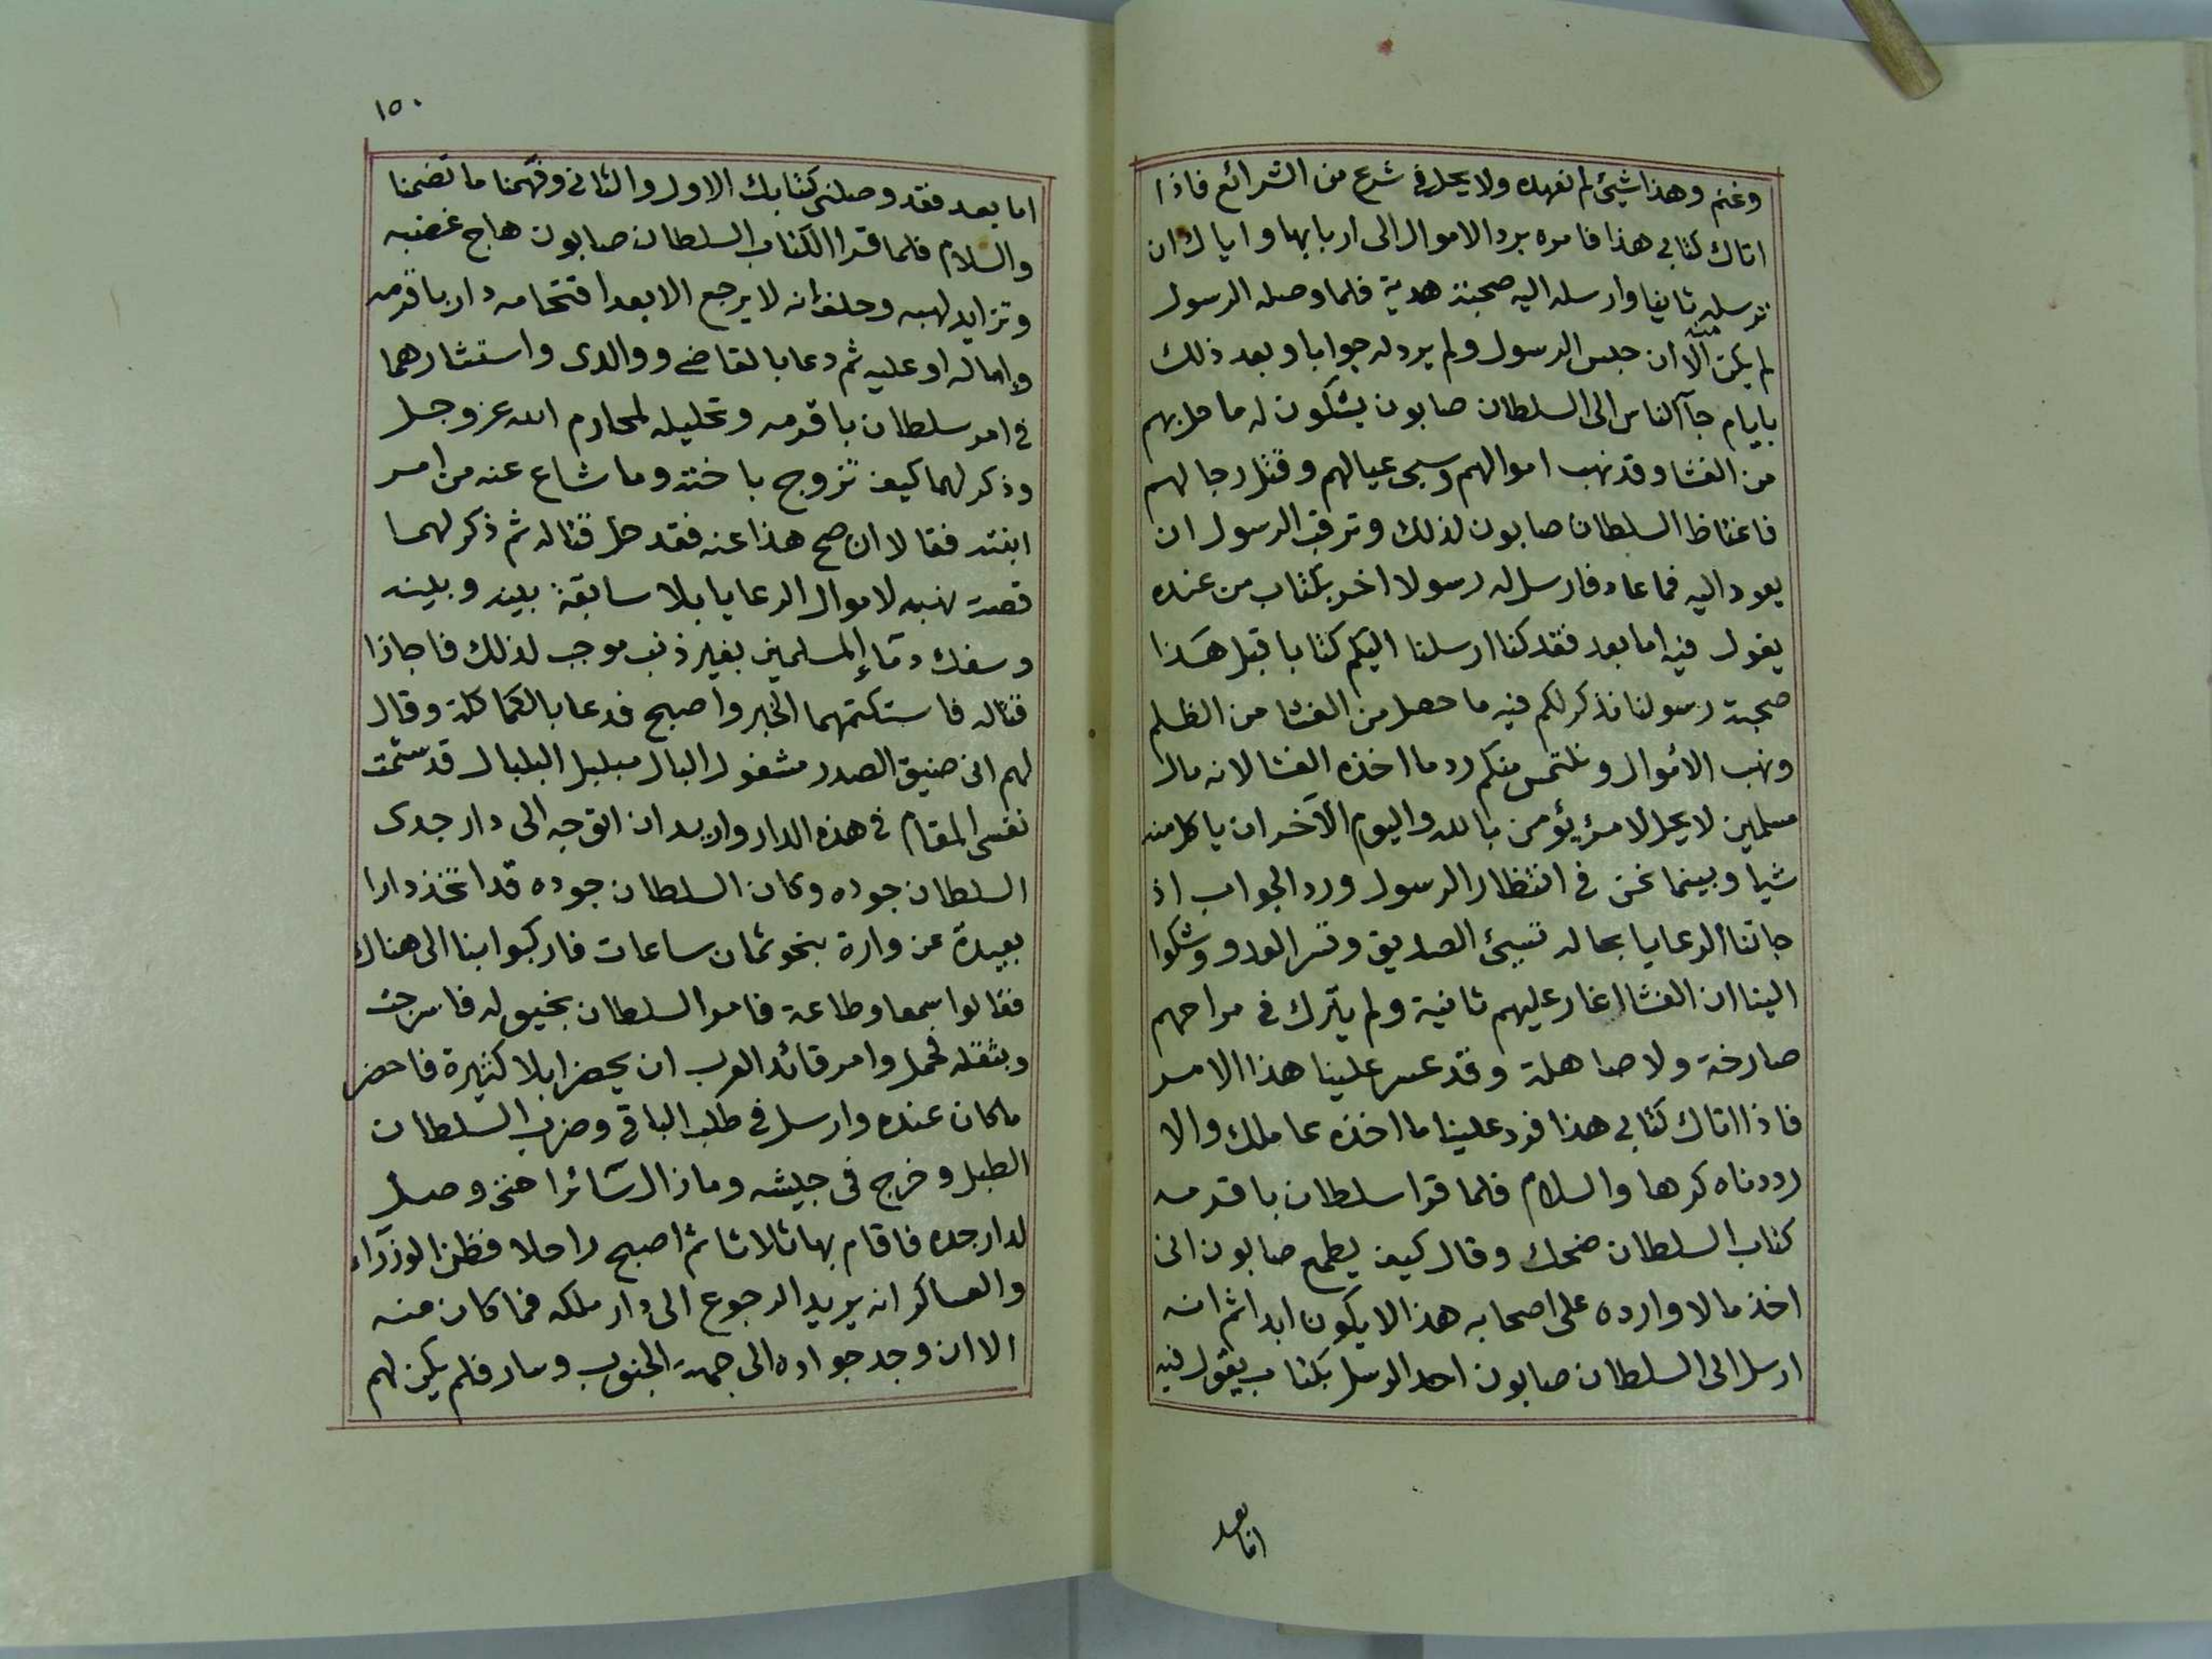 وغنم وهذا شيئ لم نعهده ولا يحل في شرع من الشرائع فاذا
اتاك كتابي هذا فامره برد الاموال الى اربابها واياك ان
ترسله ثانيا وارسله اليه صحبة هدية فلما وصله الرسول
لم يكن منه الا ان حبس الرسول ولم يرد له جوابا وبعد ذلك
بايام جآ الناس الى السلطان صابون يشكون له ما حل بهم
من الغشا وقد نهب اموالهم وسبى عيالهم وقتل رجالهم
فاغتاظ السلطان صابون لذلك وترقب الرسول ان
يعود اليه فما عاد فارسل له رسولا اخر بكتاب من عنده
يقول فيه اما بعد فقد كنا ارسلنا اليكم كتابا قبل هذا
صحبة رسولنا نذكر لكم فيه ما حصل من الغشا من الظلم
ونهب الأموال ونلتمس منكم رد ما اخذه الغشا لانه مال
مسلمين لا يحل لامرئ يؤمن بالله واليوم الآخر ان ياكل منه
شيا وبينما نحن في انتظار الرسول ورد الجواب اذ
جاتنا الرعايا بحالة تسيئ الصديق وتسر العدو وشكوا
الينا ان الغشا اغار عليهم ثانية ولم يترك في مراحهم
صارخة ولا صاهلة وقد عسر علينا هذا الامر
فاذا اتاك كتابي هذا فرد علينا ما اخذه عاملك والا
رددناه كرها والسلام فلما قرا سلطان باقرمه
كتاب السلطان ضحك وقال كيف يطمع صابون انى
اخذ مالا وارده على اصحابه هذا لا يكون ابدا ثم انه
ارسل الى السلطان صابون احد الرسل بكتاب يقول فيه
اما بعد
١٥٠
اما بعد فقد وصلنى كتابك الاول والثاني وفهمنا ما تضمنا
والسلام فلما قرا الكتاب السلطان صابون هاج غضبه
وتزايد لهبه وحلف انه لا يرجع الا بعد اقتحامه دار باقرمه
واما له او عليه ثم دعا بالقاضى ووالدى واستشارهما
في امر سلطان باقرمه وتحليله لمحارم الله عز وجل
وذكر لهما كيف تزوج باخته وما شاع عنه من امر
ابنته فقالا ان صح هذا عنه فقد حل قتاله ثم ذكر لهما
قصة نهبه لاموال الرعايا بلا سابقة بينه وبينه
وسفك دمآء المسلمين بغير ذنب موجب لذلك فاجازا
قتاله فاستكتمهما الخبر واصبح فدعا بالكماكلة وقال
لهم انى ضيق الصدر مشغول البال مبلبل البلبال قد سئمت
نفسى المقام في هذه الدار واريد ان اتوجه الى دار جدى
السلطان جوده وكان السلطان جوده قد اتخذ دارا
بعيدة عن وارة بنحو ثمان ساعات فاركبوا بنا الى هناك
فقالوا سمعا وطاعة فامر السلطان بخيوله فاسرجت
وبثقله فحمل وامر قائد العرب ان يحضر ابلا كثيرة فاحضر
ما كان عنده وارسل في طلب الباقي وضرب السلطان
الطبل وخرج في جيشه وما زال سآئرا حتى وصل
لدار جده فاقام بها ثلاثا ثم اصبح راحلا فظن الوزرآء
والعساكر انه يريد الرجوع الى دار ملكه فما كان منه
الا ان وجه جواده الى جهة الجنوب وسار فلم يكن لهم